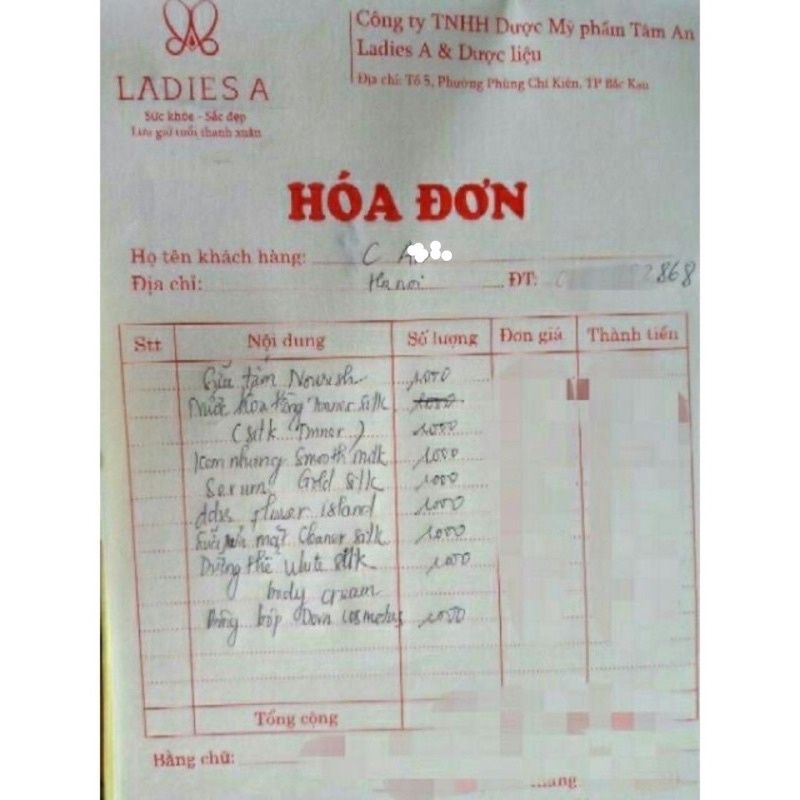 LADIES A
Sức khỏe - Sắc đẹp
Lưu giữ tuổi thanh xuân
Công ty TNHH Dược Mỹ phẩm Tâm An
Ladies A & Dược liệu
Địa chỉ: Tổ 5, Phường Phùng Chí Kiên, TP Bắc Kạn
HÓA ĐƠN
Họ tên khách hàng: C A
Địa chỉ: Hanoi ĐT: 2868
Stt Nội dung Số lượng Đơn giá Thành tiền
Sữa tắm Nourish 1000
Nước hoa hồng silk 1000
(Silk) 1000
Kem nhung Smooth milk 1000
Serum Gold silk 1000
flower island 1000
rửa mặt silk 1000
Dưỡng thể White silk 1000
body cream
Bông 1000
Tổng cộng
Bằng chữ:
tháng